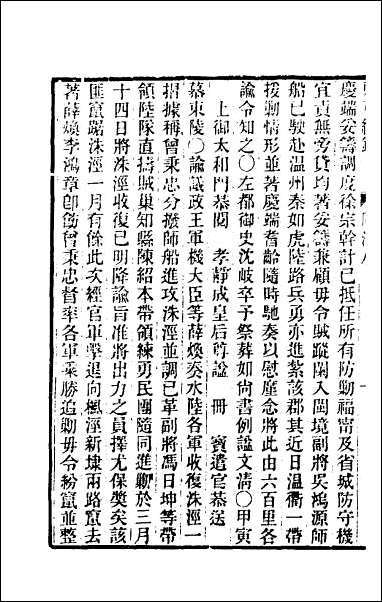 慶端妥籌調度徐宗幹計已抵任所有防勦福甯及省城防守機
宜責無旁貸均著妥籌兼顧毋令賊蹤闌入閩境副將吳鴻源師
船已駛赴温州秦如虎陸路兵勇亦進紮該郡其近日温衢一帶
援勦情形並著慶端耆齡隨時馳奏以慰廑念將此由六百里各
諭令知之〇左都御史沈岐卒予祭葬如尚書例諡文清〇甲寅
上御太和門恭閱　孝靜成皇后尊諡　冊　寶遣官恭送
慕東陵〇諭議政王軍機大臣等薛煥奏水陸各軍收復洙涇一
摺據稱曾秉忠分撥師船進攻洙涇並調已革副將馮日坤等帶
領陸隊直擣賊巢知縣陳紹本帶領練勇民團隨同進勦於三月
十四日將洙涇收復已明降諭旨准將出力之員擇尤保獎矣該
匪竄踞洙涇一月有餘此次經官軍擊退向楓涇新埭兩路竄去
著薛煥李鴻章卽飭曾秉忠督率各軍乘勝追勦毋令紛竄並整